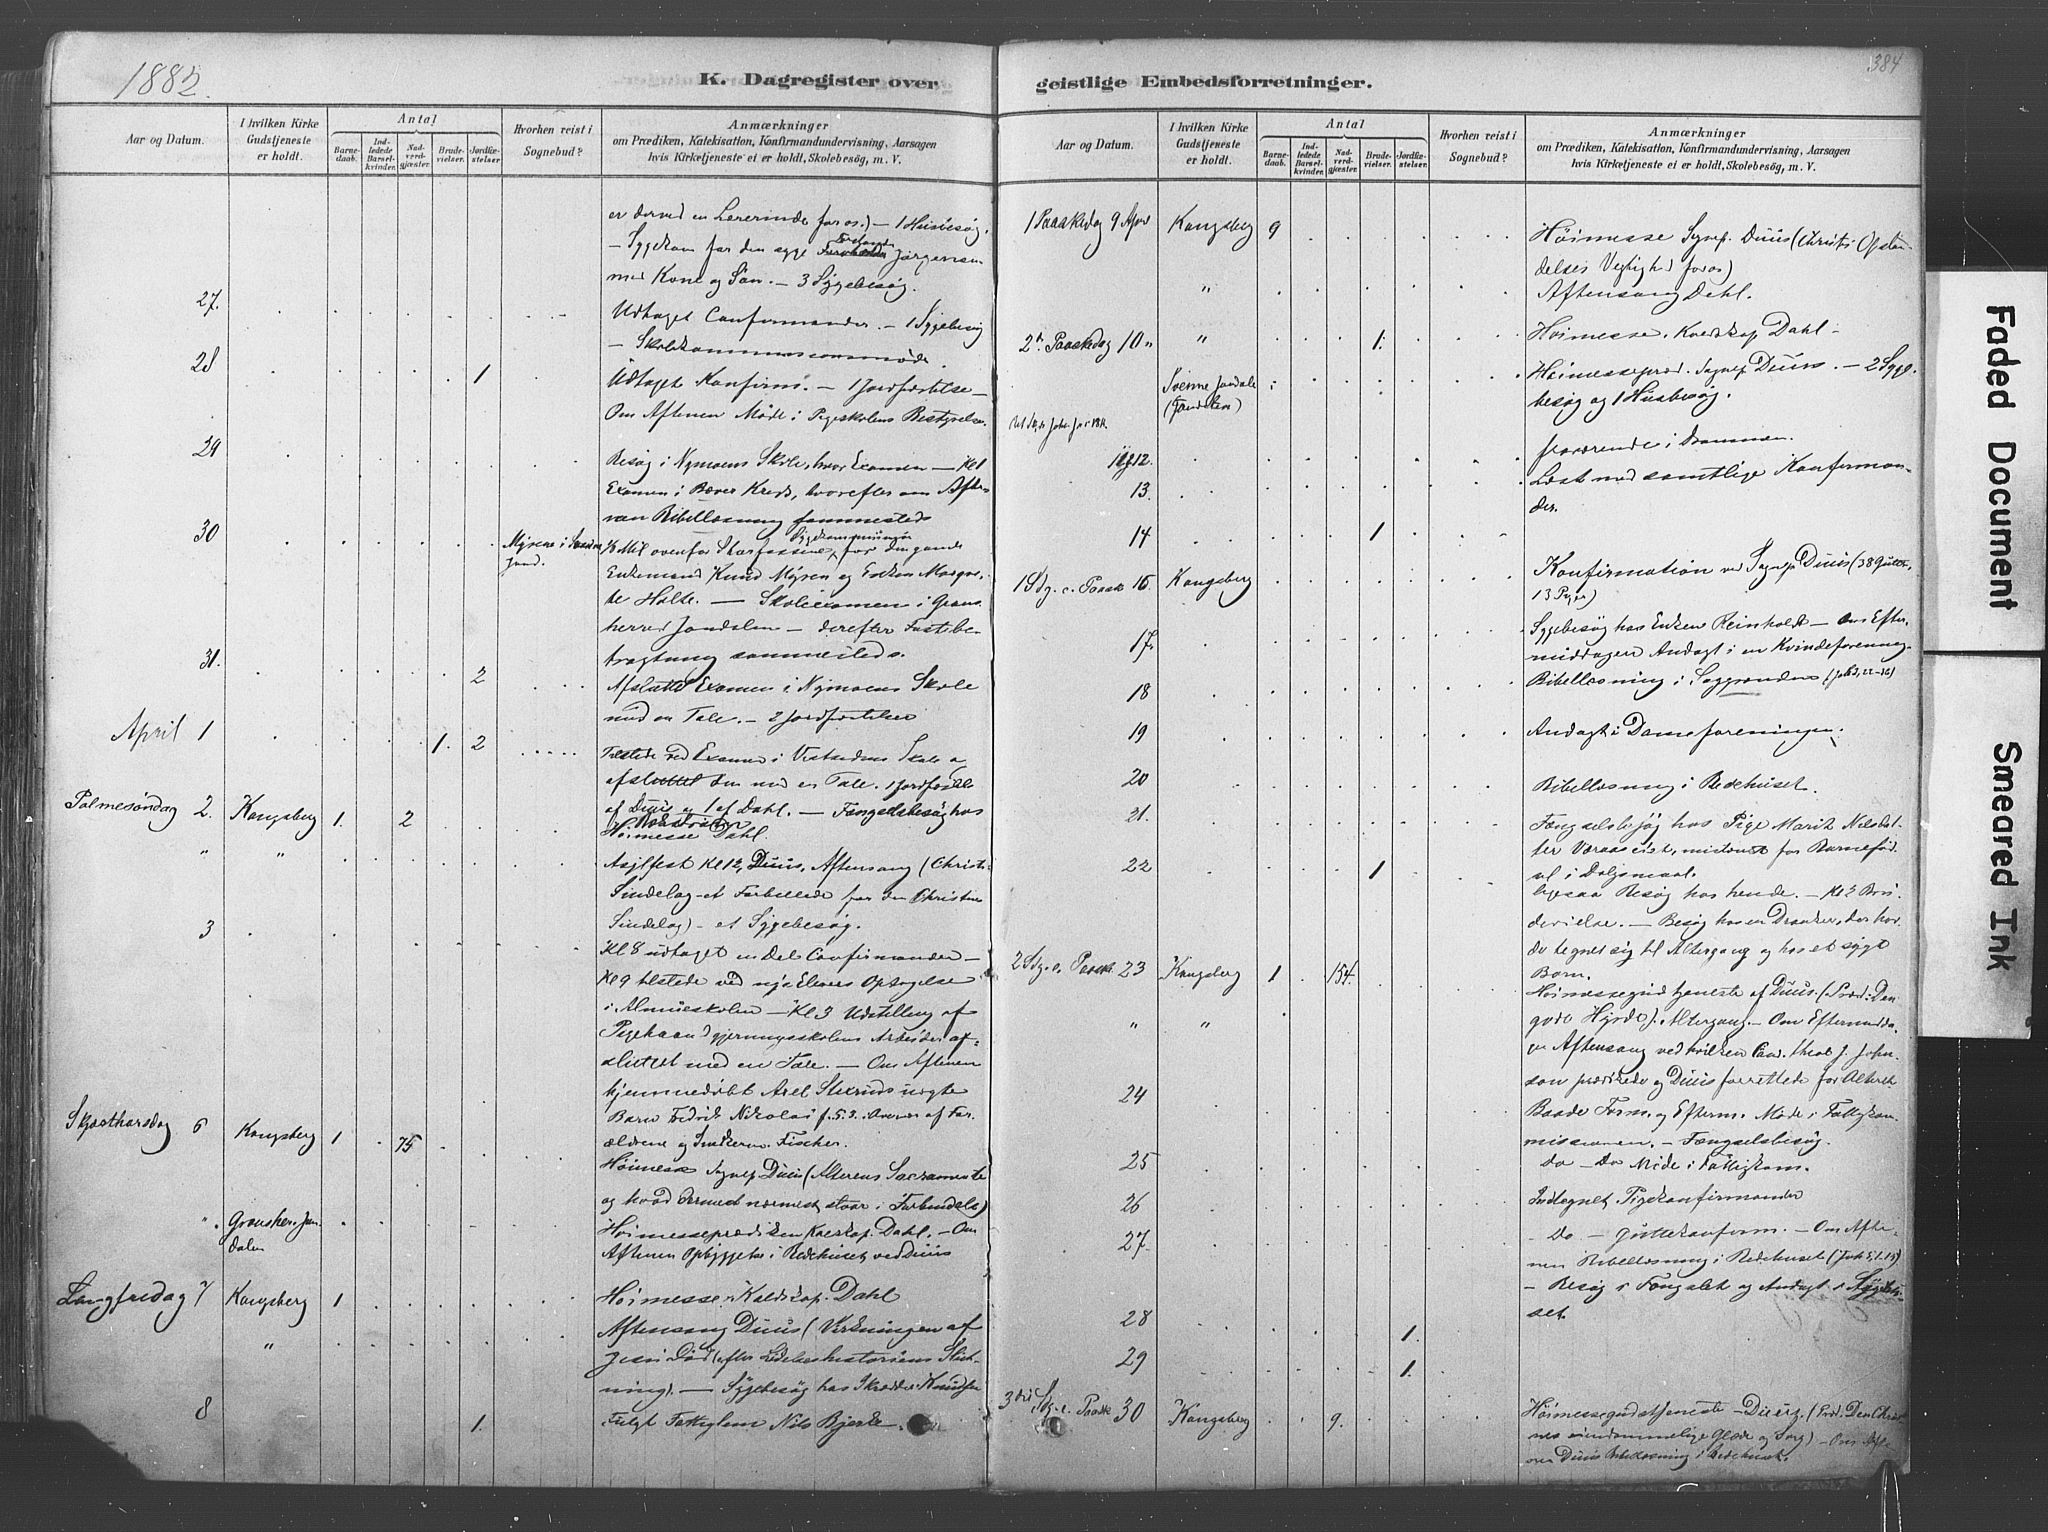 1882.
K. Dagregister over
geistlige Embedsforretninger.
384
Aar og Datum.
I hvilken Kirke Gudstjeneste er holdt.
Antal
Barne-daab.
Ind-ledede Barsel-kvinder.
Nad-verd-gjæster.
Brude-vielser.
Jordfæ-stelser
Hvorhen reist i Sognebud?
Anmærkninger
om Prædiken, Katekisation, Konfirmandundervisning, Aarsagen
hvis Kirketjeneste ei er holdt, Skolebesøg, m. V.
er derved en Lærerinde for os.) – 1 Huusbesøg.
– Sygekom for den syge Jørgensen
med Kone og Søn. – 3 Sygebesøg.
27.
Udtaget Confirmander. – 1 Sygebesøg
– Skolekommissionsmøde
28 1
Udtaget Konfirm. – 1 Jordfæstelse –
Om Aftenen Møde i Pigeskolens Bestyrelse.
29
Besøg i Nymoens Skole, hvor Examen – Kl 1
Examen i Bæver Kreds, hvorefter om Afte-
nen Bibellæsning sammesteds
30
Mysene i
Jond.
½ Mil ovenfor for den gamle
Enkemand Knud Mysen og Enken Margre-
te Holte. – Skoleexamen i Grans-
herred Jondalen – derefter Fastebe-
tragtning sammesteds.
31. 2
Afsluttet Examen i Nymoens Skole
med en Tale. – 2 Jordfæstelser
April 1 1. 2
Tilstede ved Examen i Vestsidens Skole og
afsluttet den med en Tale. 1 Jordfæstelse
af Duus og 1 af Dahl. – Fængselsbesøg hos
Palmesøndag 2. Kongsberg 1. 2
Høimesse Dahl.
" "
Asylfest Kl 12, Duus, Aftensang (Christi
Sindelag et Forbillede for den Christnes
Sindelag) – et Sygebesøg.
3
Kl 8 udtaget en Del Confirmander –
Kl 9 tilstede ved nye Elevers Optagelse
i Almueskolen – Kl 3 Udstilling af
Pigehaandgjerningsskolens Arbeider af-
sluttet med en Tale. – Om Aftenen
hjemmedøbt Axel Stixruds uægte
Barn Fedrik Nikolai f. 5.3. Overvær af For-
ældrene og Fischer.
Skjærthorsdag 6 Kongsberg 1 75
Høimesse Sognep Duus (Alterens Sacramente
og hvad dermed nærmest staar i Forbindelse)
" Gransher. Jon-
dalen
Høimesseprædiken Kaldskap. Dahl. – Om
Aftenen Opbyggelse i Bedehuset ved Duus
Langfredag 7 Kongsberg 1
Høimesse Kaldskap. Dahl
"
Aftensang Duus (Virkningen af
Jesu Død (efter Lidelseshistoriens Slut-
ning). – Sygebesøg hos Skrædder Knudsen
8 1.
Fulgt Fattiglem Nils Bjerke.
Aar og Datum.
I hvilken Kirke Gudstjeneste er holdt.
Antal
Barne-daab.
Ind-ledede Barsel-kvinder.
Nad-verd-gjæster.
Brude-vielser.
Jordfæ-stelser.
Hvorhen reist i Sognebud?
Anmærkninger
om Prædiken, Katekisation, Konfirmandundervisning, Aarsagen
hvis Kirketjeneste ei er holdt, Skolebesøg, m. V.
1 Paaskedag 9 April Kongsberg 9
Høimesse Sognep. Duus (Christi Opstan-
delses Vigtighed for os)
"
Aftensang Dahl.
2n Paaskedag 10 " " 1.
Høimesse, Kaldskap Dahl –
Svenne Jondale
(Jondalen)
Høimessepræd. Sognep Duus. – 2 Syge-
besøg og 1 Husbesøg.
11 og 12.
fraværende i Drammen.
13.
Læst med samtlige Konfirman-
der.
14 1
1 Sdg. e. Paaske 16. Kongsberg
Konfirmation ved Sognep Duus (38 Gutter,
13 Piger)
17.
Sygebesøg hos Enken Reinholdt – Om Efter-
middagen Andagt i en Kvindeforening
18
Bibellæsning i
19
Andagt i Dameforeningen.
20
Bibellæsning i Bedehuset.
21.
Fængselsbesøg hos Pige Marit Nilsdat-
ter Væraas eist, mistænkt for Barnefød-
sel i Dølgsmaal.
22 1
ligesaa Besøg hos hende. – Kl 3 Bru-
devielse. – Besøg hos en Dranker, der hav-
de tegnet sig til Altergang og hos et sygt
Barn.
2 Sdg. e. Paaske 23 Kongsberg 1 154.
Høimessegudstjeneste af Duus. (Præd: Den
gode Hyrde). Altergang – Om Eftermidda-
" "
gen Aftensang ved hvilken Cand. theol J. John-
son prædikede og Duus forrettede for Alteret
24
Baade Form. og Efterm. Møde i Fattigkom-
missionen. – Fængselsbesøg.
25
Do – Do Møde i Fattigkom.
26
Indtegnet Pigekonfirmander
27.
– Do – Guttekonfirm. – Om Afte-
nen Bibellæsning i Bedehuset (Joh 5, 1-15)
– Besøg i Fængslet og Andagt i Syge-
set.
28 1.
29 1.
3die Sdg. e. Paaske 30 Kongsberg 9.
Høimessegudstjeneste – Duus. (Præd. Den Christ-
nes eiendommelige Glæde og Sorg) – Om Aft-
enen Duus Bibellæsning i Bedehuset.
Faded Document
Smeared Ink